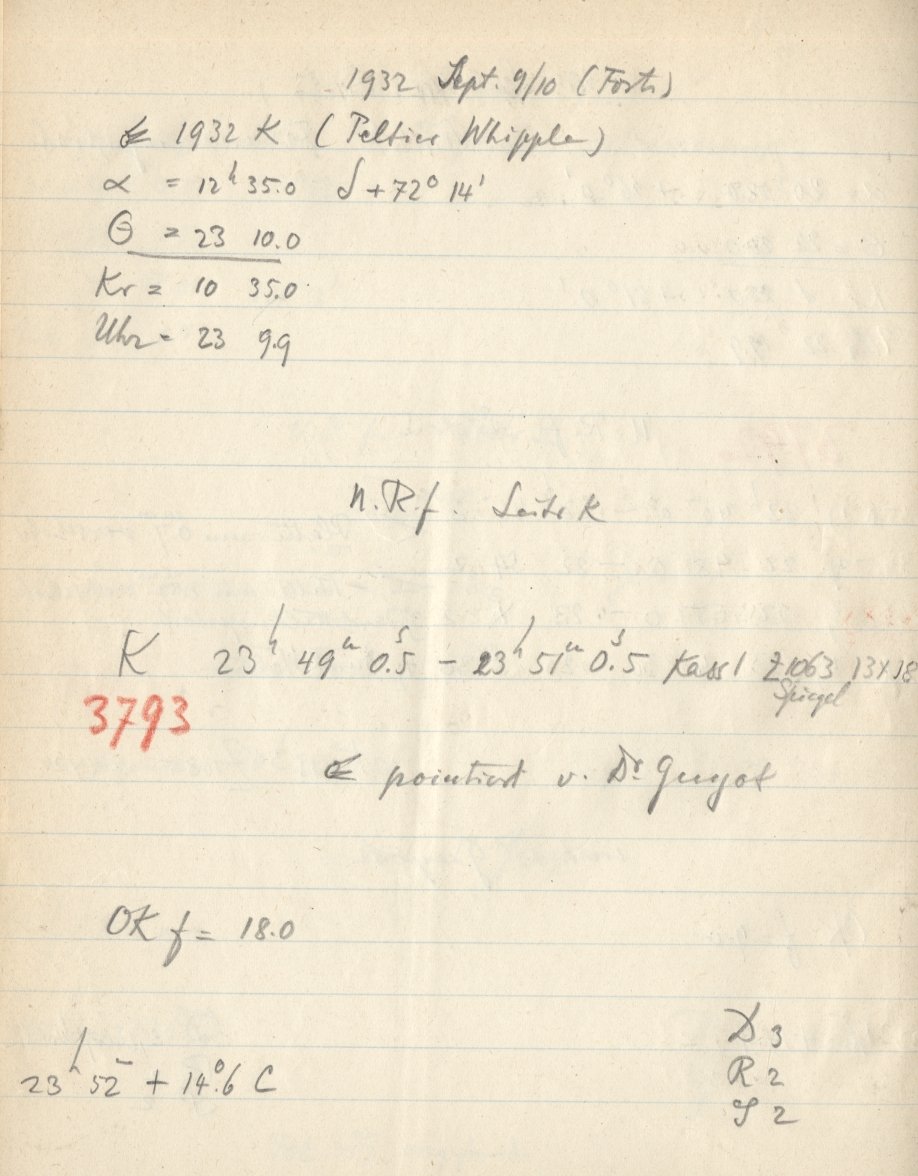 1932 Sept. 9/10 (Forts.)
☄ 1932 K (Peltier Whipple)
α = 12ʰ 35.0 δ +72° 14'
Θ = 23 10.0
Kr = 10 35.0
Uhr = 23 9.9
n. R. f. Seite K
K 23ʰ 49ᵐ 0.ˢ5 – 23ʰ 51ᵐ 0.ˢ5 Kass 1 Z 1063 13×18
Spiegel
3793
☄ pointiert v. Dr Guyot
OK f = 18.0
D 3
23ʰ 52ᵐ + 14.°6 C
R 2
S 2